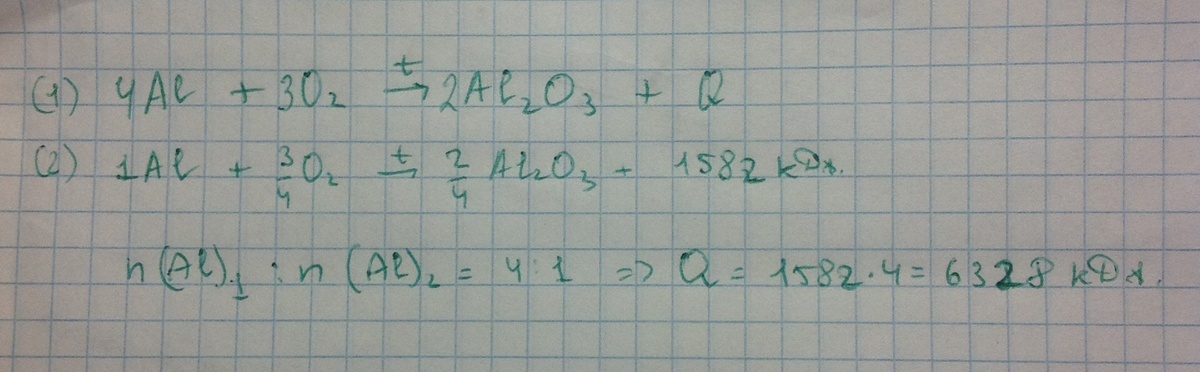 (1) 4Al + 3O₂ →ᵗ 2Al₂O₃ + Q
(2) 1Al + 3/4 O₂ →ᵗ 2/4 Al₂O₃ + 1582 кДж.
n(Al)₁ : n(Al)₂ = 4:1 => Q = 1582·4 = 6328 кДж.